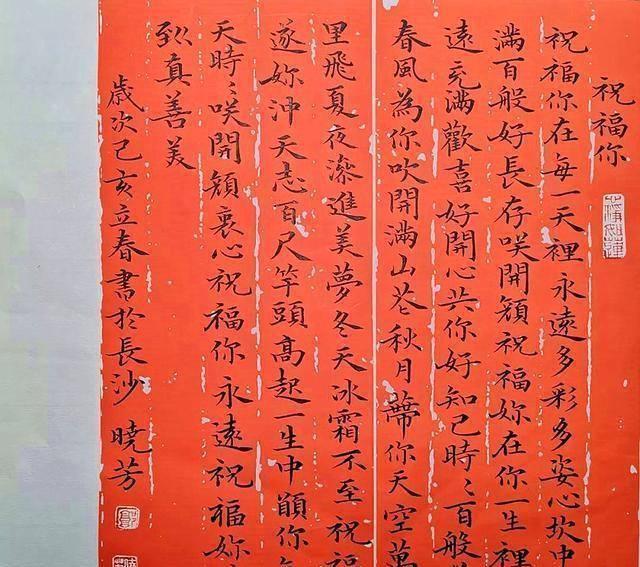 祝福你
祝福你在每一天裡永遠多彩多姿心坎中
滿百般好長存咲開顏祝福妳在你一生裡
遠充滿歡喜好開心共你好知己時〻百般
春風為你吹開滿山花秋月帶你天空萬
里飛夏夜滲進美夢冬天冰霜不至祝福
遂妳沖天志百尺竿頭高起一生中願你
天時〻咲開顏衷心祝福你永遠祝福妳
到真善美
歲次己亥立春書於長沙 曉芳